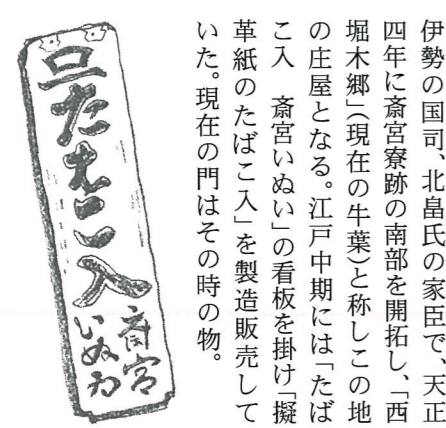 伊勢の国司、北畠氏の家臣で、天正
四年に斎宮寮跡の南部を開拓し、「西
堀木郷」(現在の牛葉)と称しこの地
の庄屋となる。江戸中期には「たば
こ入　斎宮いぬい」の看板を掛け「擬
革紙のたばこ入」を製造販売して
いた。現在の門はその時の物。
たばこ入
斎宮
いぬゐ